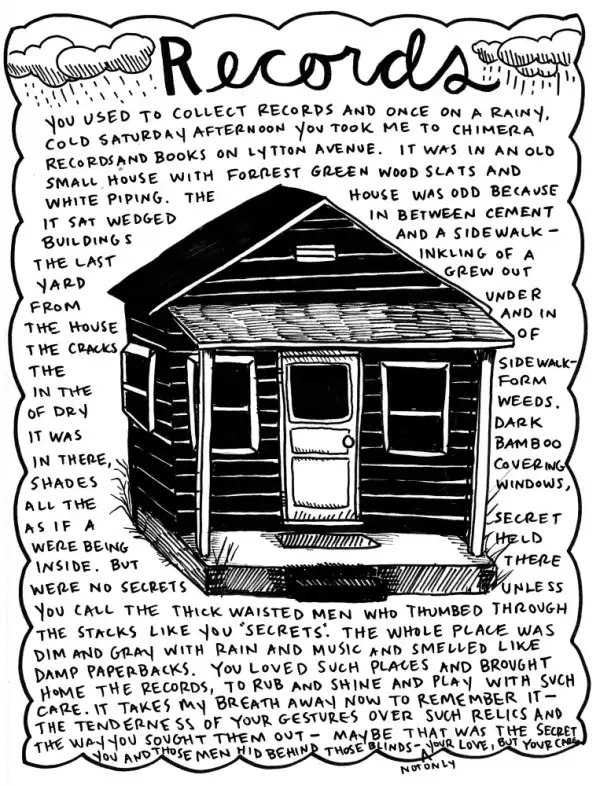 Records
YOU USED TO COLLECT RECORDS AND ONCE ON A RAINY,
COLD SATURDAY AFTERNOON YOU TOOK ME TO CHIMERA
RECORDS AND BOOKS ON LYTTON AVENUE. IT WAS IN AN OLD
SMALL HOUSE WITH FORREST GREEN WOOD SLATS AND
WHITE PIPING. THE HOUSE WAS ODD BECAUSE
IT SAT WEDGED IN BETWEEN CEMENT
BUILDINGS AND A SIDEWALK-
THE LAST INKLING OF A
YARD GREW OUT
FROM UNDER
THE HOUSE AND IN
THE CRACKS OF
THE SIDEWALK-
IN THE FORM
OF DRY WEEDS.
IT WAS DARK
IN THERE, BAMBOO
SHADES COVERING
ALL THE WINDOWS,
AS IF A SECRET
WERE BEING HELD
INSIDE. BUT THERE
WERE NO SECRETS UNLESS
YOU CALL THE THICK WAISTED MEN WHO THUMBED THROUGH
THE STACKS LIKE YOU "SECRETS". THE WHOLE PLACE WAS
DIM AND GRAY WITH RAIN AND MUSIC AND SMELLED LIKE
DAMP PAPERBACKS. YOU LOVED SUCH PLACES AND BROUGHT
HOME THE RECORDS, TO RUB AND SHINE AND PLAY WITH SUCH
CARE. IT TAKES MY BREATH AWAY NOW TO REMEMBER IT-
THE TENDERNESS OF YOUR GESTURES OVER SUCH RELICS AND
THE WAY YOU SOUGHT THEM OUT- MAYBE THAT WAS THE SECRET
YOU AND THOSE MEN HID BEHIND THOSE BLINDS- YOUR LOVE, BUT YOUR CARE.
NOT ONLY